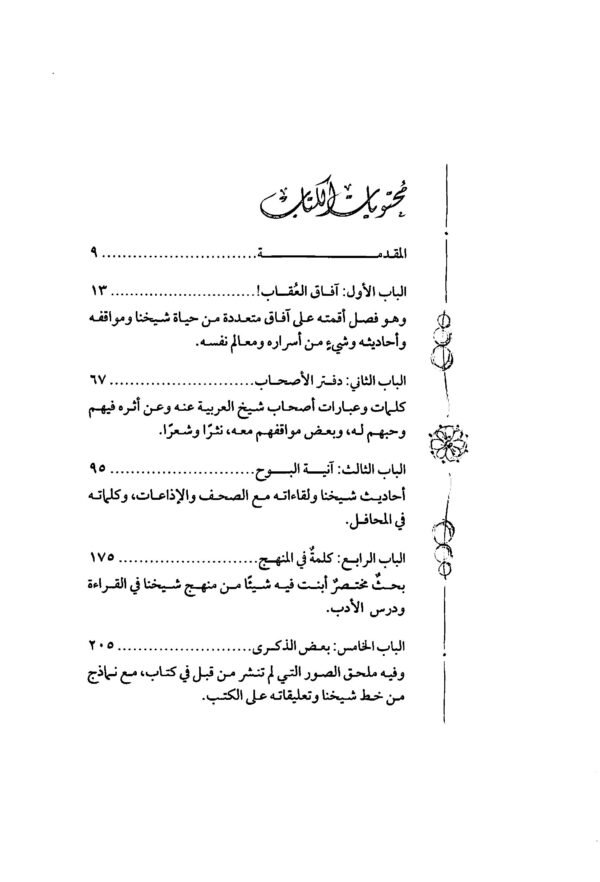 محتويات الكتاب
المقدمـــــــــــــــــــــة............................ ٩
الباب الأول: آفاق العُقاب!......................... ١٣
وهو فصل أقمته على آفاق متعددة من حياة شيخنا ومواقفه
وأحاديثه وشيءٍ من أسراره ومعالم نفسه.
الباب الثاني: دفتر الأصحاب......................... ٦٧
كلمات وعبارات أصحاب شيخ العربية عنه وعن أثره فيهم
وحبهم له، وبعض مواقفهم معه، نثرًا وشعرًا.
الباب الثالث: آنية البوح......................... ٩٥
أحاديث شيخنا ولقاءاته مع الصحف والإذاعات، وكلماته
في المحافل.
الباب الرابع: كلمةٌ في المنهج........................ ١٧٥
بحثٌ مختصرٌ أبنت فيه شيئًا من منهج شيخنا في القراءة
ودرس الأدب.
الباب الخامس: بعض الذكرى....................... ٢٠٥
وفيه ملحق الصور التي لم تنشر من قبل في كتاب، مع نماذج
من خط شيخنا وتعليقاته على الكتب.